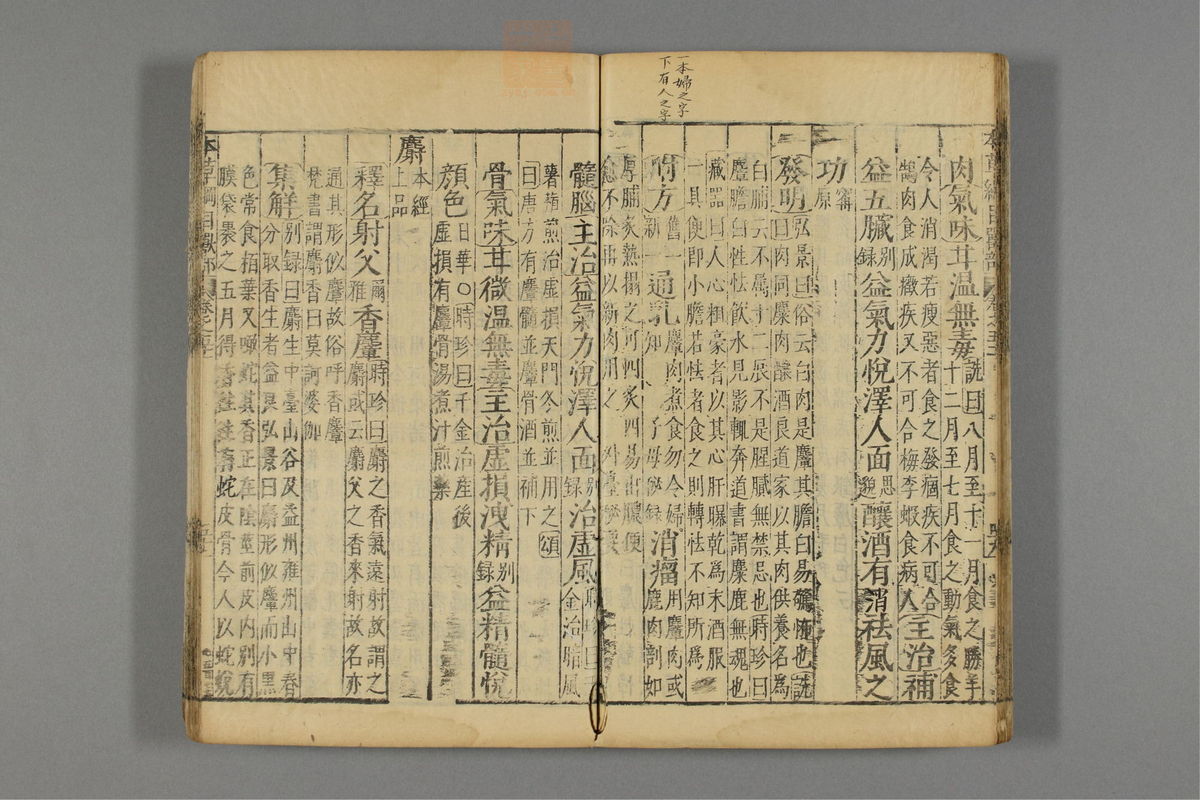 一本婦之字
下有人之字
肉氣味甘溫無毒詵曰八月至十一月食之勝羊
十二月至七月食之動氣多食
令人消渴若瘦惡者食之發痼疾不可合
鵠肉食成癥疾又不可合梅李蝦食病人主治補
益五臟别録益氣力悅澤人面思邈釀酒有消祛風之
功審原
發明弘景曰俗云白肉是麞其膽白易驚怖也詵
曰肉同麋肉釀酒良道家以其肉供養名為
白脯云不屬十二辰不是腥膩無禁忌也時珍曰
麞膽白性怯飲水見影輒奔道書謂麋鹿無魂也
藏器曰人心粗豪者以其心肝曝乾為末酒服
一具便即小膽若怯者食之則轉怯不知所為
附方舊一新一通乳麞肉煮食勿令婦知
子母秘録消瘤用麞肉或鹿肉剖如
厚脯炙熱搨之可四炙四易出膿便
愈不除再以新肉用之
髓腦主治益氣力悅澤人面别録治虛風時珍曰
千金治暗風
薯蕷煎治虛損天門冬煎並用之頌
曰唐方有麞髓並麞骨酒並補下
骨氣味甘微溫無毒主治虛損洩精别録益精髓悅
顏色日華○時珍曰千金治產後
虛損有麞骨湯煮汁煎藥
麝本經上品
釋名射父爾雅香麞時珍曰麝之香氣遠射故謂之
麝或云麝父之香來射故名亦
通其形似麞故俗呼香麞
梵書謂麝香曰莫訶婆伽
集解别録曰麝生中臺山谷及益州雍州山中春
分取香生者益良弘景曰麝形似麞而小黑
色常食柏葉又噉蛇其香正在陰莖前皮内别有
膜袋裹之五月得香往往有蛇皮骨今人以蛇蛻
本草綱目獸部